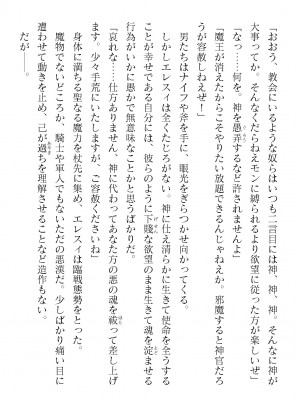 「おおう、教会にいるような奴らはいつも二言目には神、神、神。そんなに神が
大事ってか。そんなくだらねえモンに縛られるより欲望に従った方が楽しいぜ」
「なっ……何を。神を愚弄するなど許されませんよ」
「魔王が消えたからこそやりたい放題できるんじゃねえか。邪魔すると神官だろ
うが容赦しねえぜ！」
　男たちはナイフや斧を手に、眼光をぎらつかせ向かってくる。
　しかしエレスィは全くたじろがない。神に仕え清らかに生きて使命を全うする
ことが幸せである自分には、彼らのように下賤な欲望のまま生きて魂を淀ませる
行為がいかに愚かで無意味なことかと思うばかりだ。
「哀れな……仕方ありません、神に代わってあなた方の悪の魂を祓って差し上げ
いたします。少々手荒にいたしますが、ご容赦くださいね」
　身体に満ちる聖なる魔力を杖先に集め、エレスィは臨戦態勢をとった。
　魔物でないどころか、騎士や軍人でもないただの悪漢だ。少しばかり痛い目に
遭わせて動きを止め、己が過ちを理解させることなど造作もない。
　だが――。